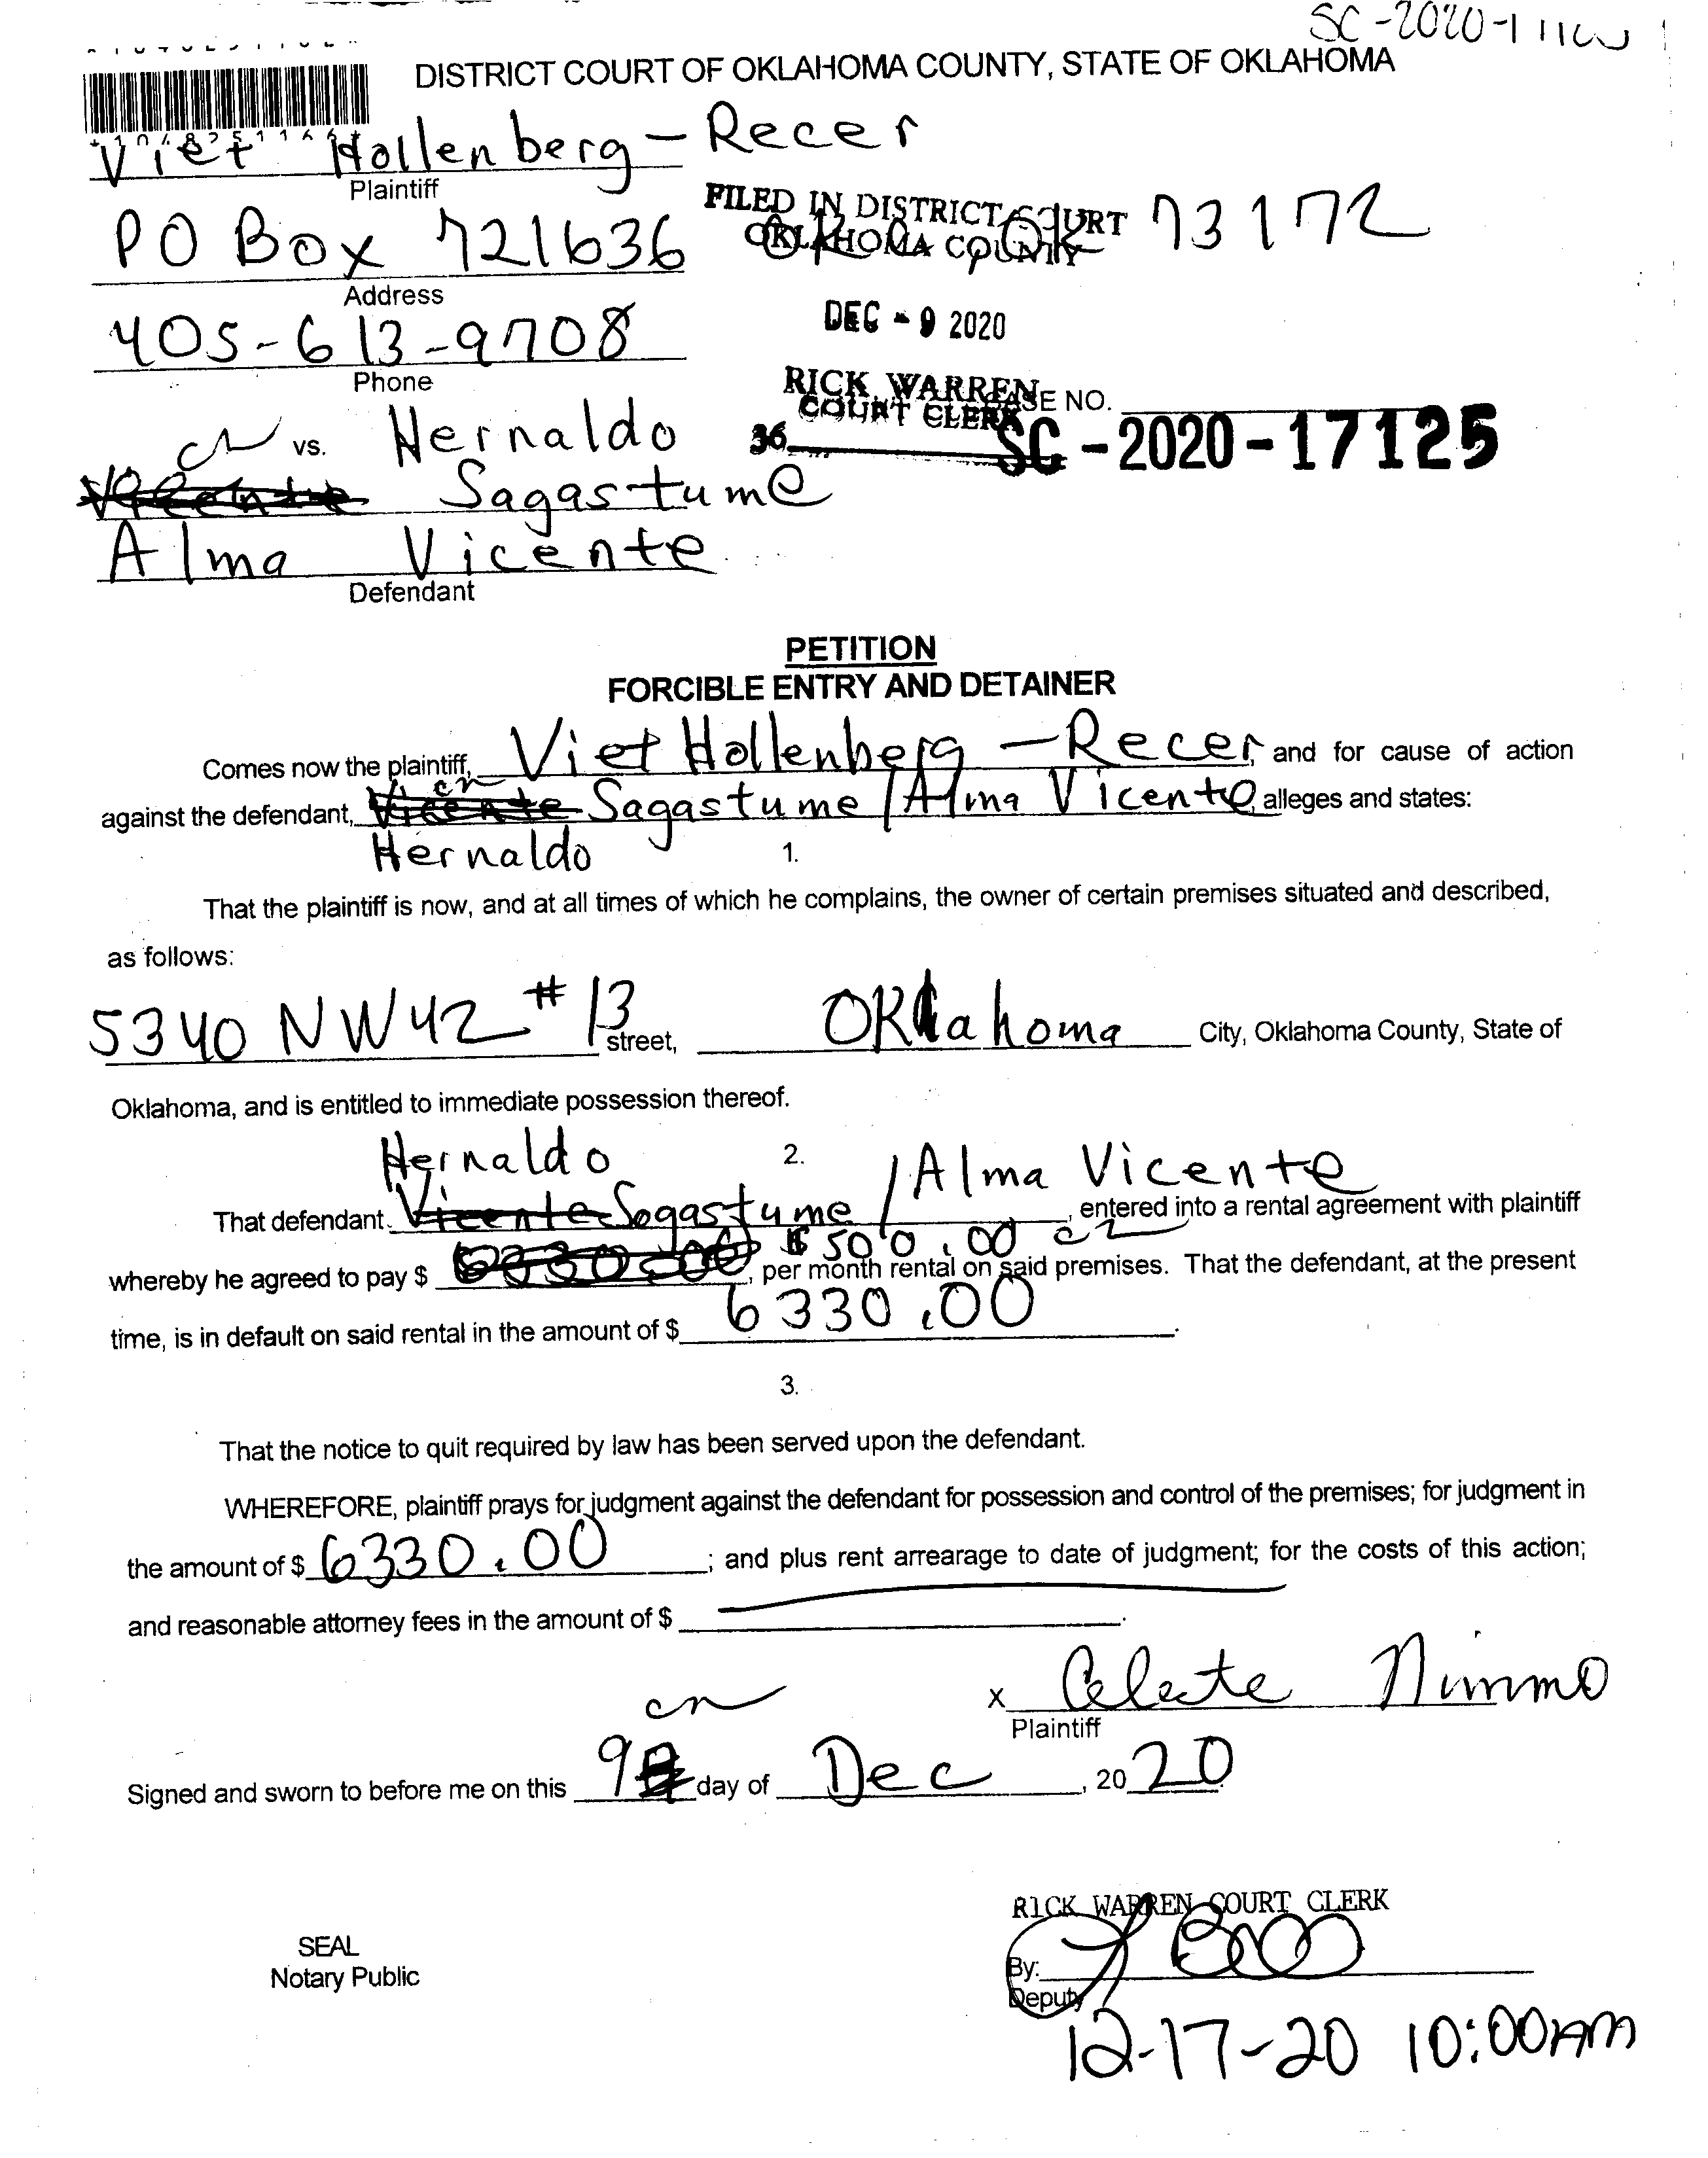 DISTRICT COURT OF OKLAHOMA COUNTY, STATE OF OKLAHOMA
Viet Hollenberg - Recer
Plaintiff
FILED IN DISTRICT COURT
OKLAHOMA COUNTY
PO Box 721636 73172
Address
DEC - 9 2020
405-613-9708
Phone
RICK WARREN
COURT CLERK
CASE NO.
36
SC-2020-17125
cn vs. Hernaldo
Vicente Sagastume
Alma Vicente
Defendant
PETITION
FORCIBLE ENTRY AND DETAINER
Comes now the plaintiff, Viet Hollenberg - Recer, and for cause of action
cn
against the defendant, Vicente Sagastume / Alma Vicente, alleges and states:
Hernaldo
1.
That the plaintiff is now, and at all times of which he complains, the owner of certain premises situated and described,
as follows:
5340 NW 42 #13 street, Oklahoma City, Oklahoma County, State of
Oklahoma, and is entitled to immediate possession thereof.
2.
Hernaldo / Alma Vicente
That defendant Vicente Sagastume, entered into a rental agreement with plaintiff
$500.00 cn
whereby he agreed to pay $ 6330.00, per month rental on said premises. That the defendant, at the present
time, is in default on said rental in the amount of $ 6330.00.
3.
That the notice to quit required by law has been served upon the defendant.
WHEREFORE, plaintiff prays for judgment against the defendant for possession and control of the premises; for judgment in
the amount of $ 6330.00; and plus rent arrearage to date of judgment; for the costs of this action;
and reasonable attorney fees in the amount of $
x Celeste Nimmo
Plaintiff
cn
Signed and sworn to before me on this 9 day of Dec, 2020
RICK WARREN COURT CLERK
SEAL
Notary Public
By:
Deputy
12-17-20 10:00AM